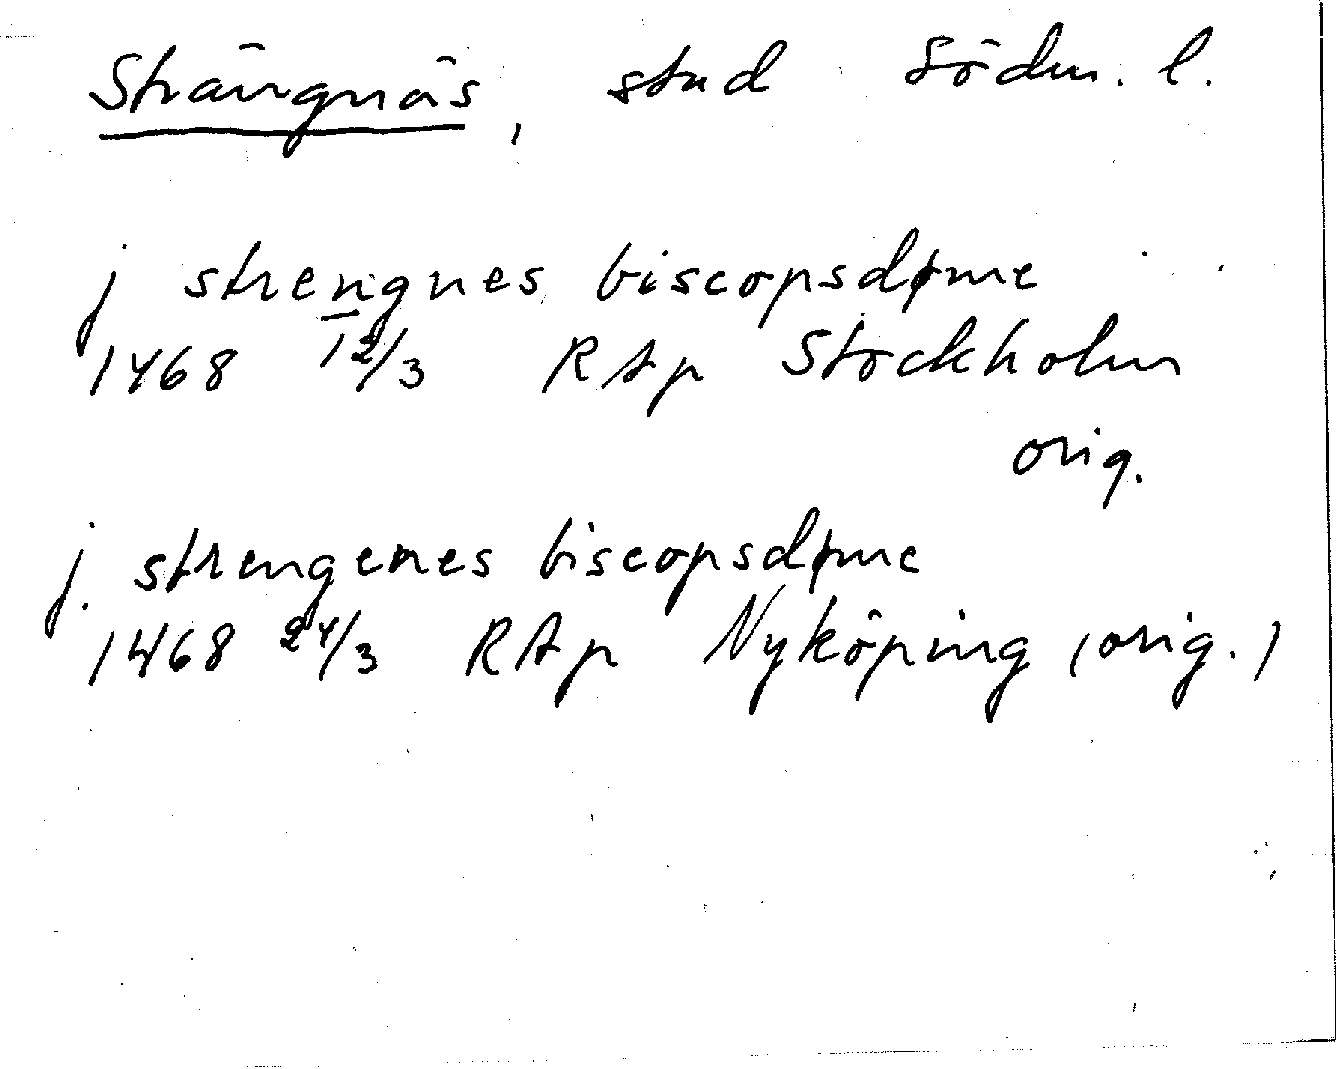 Strängnäs, stad Södm. l.
j strengnes biscopsdøme
1468 12/3 RAp Stockholm
orig.
j. strengenes biscopsdøme
1468 24/3 RAp Nyköping (orig.)